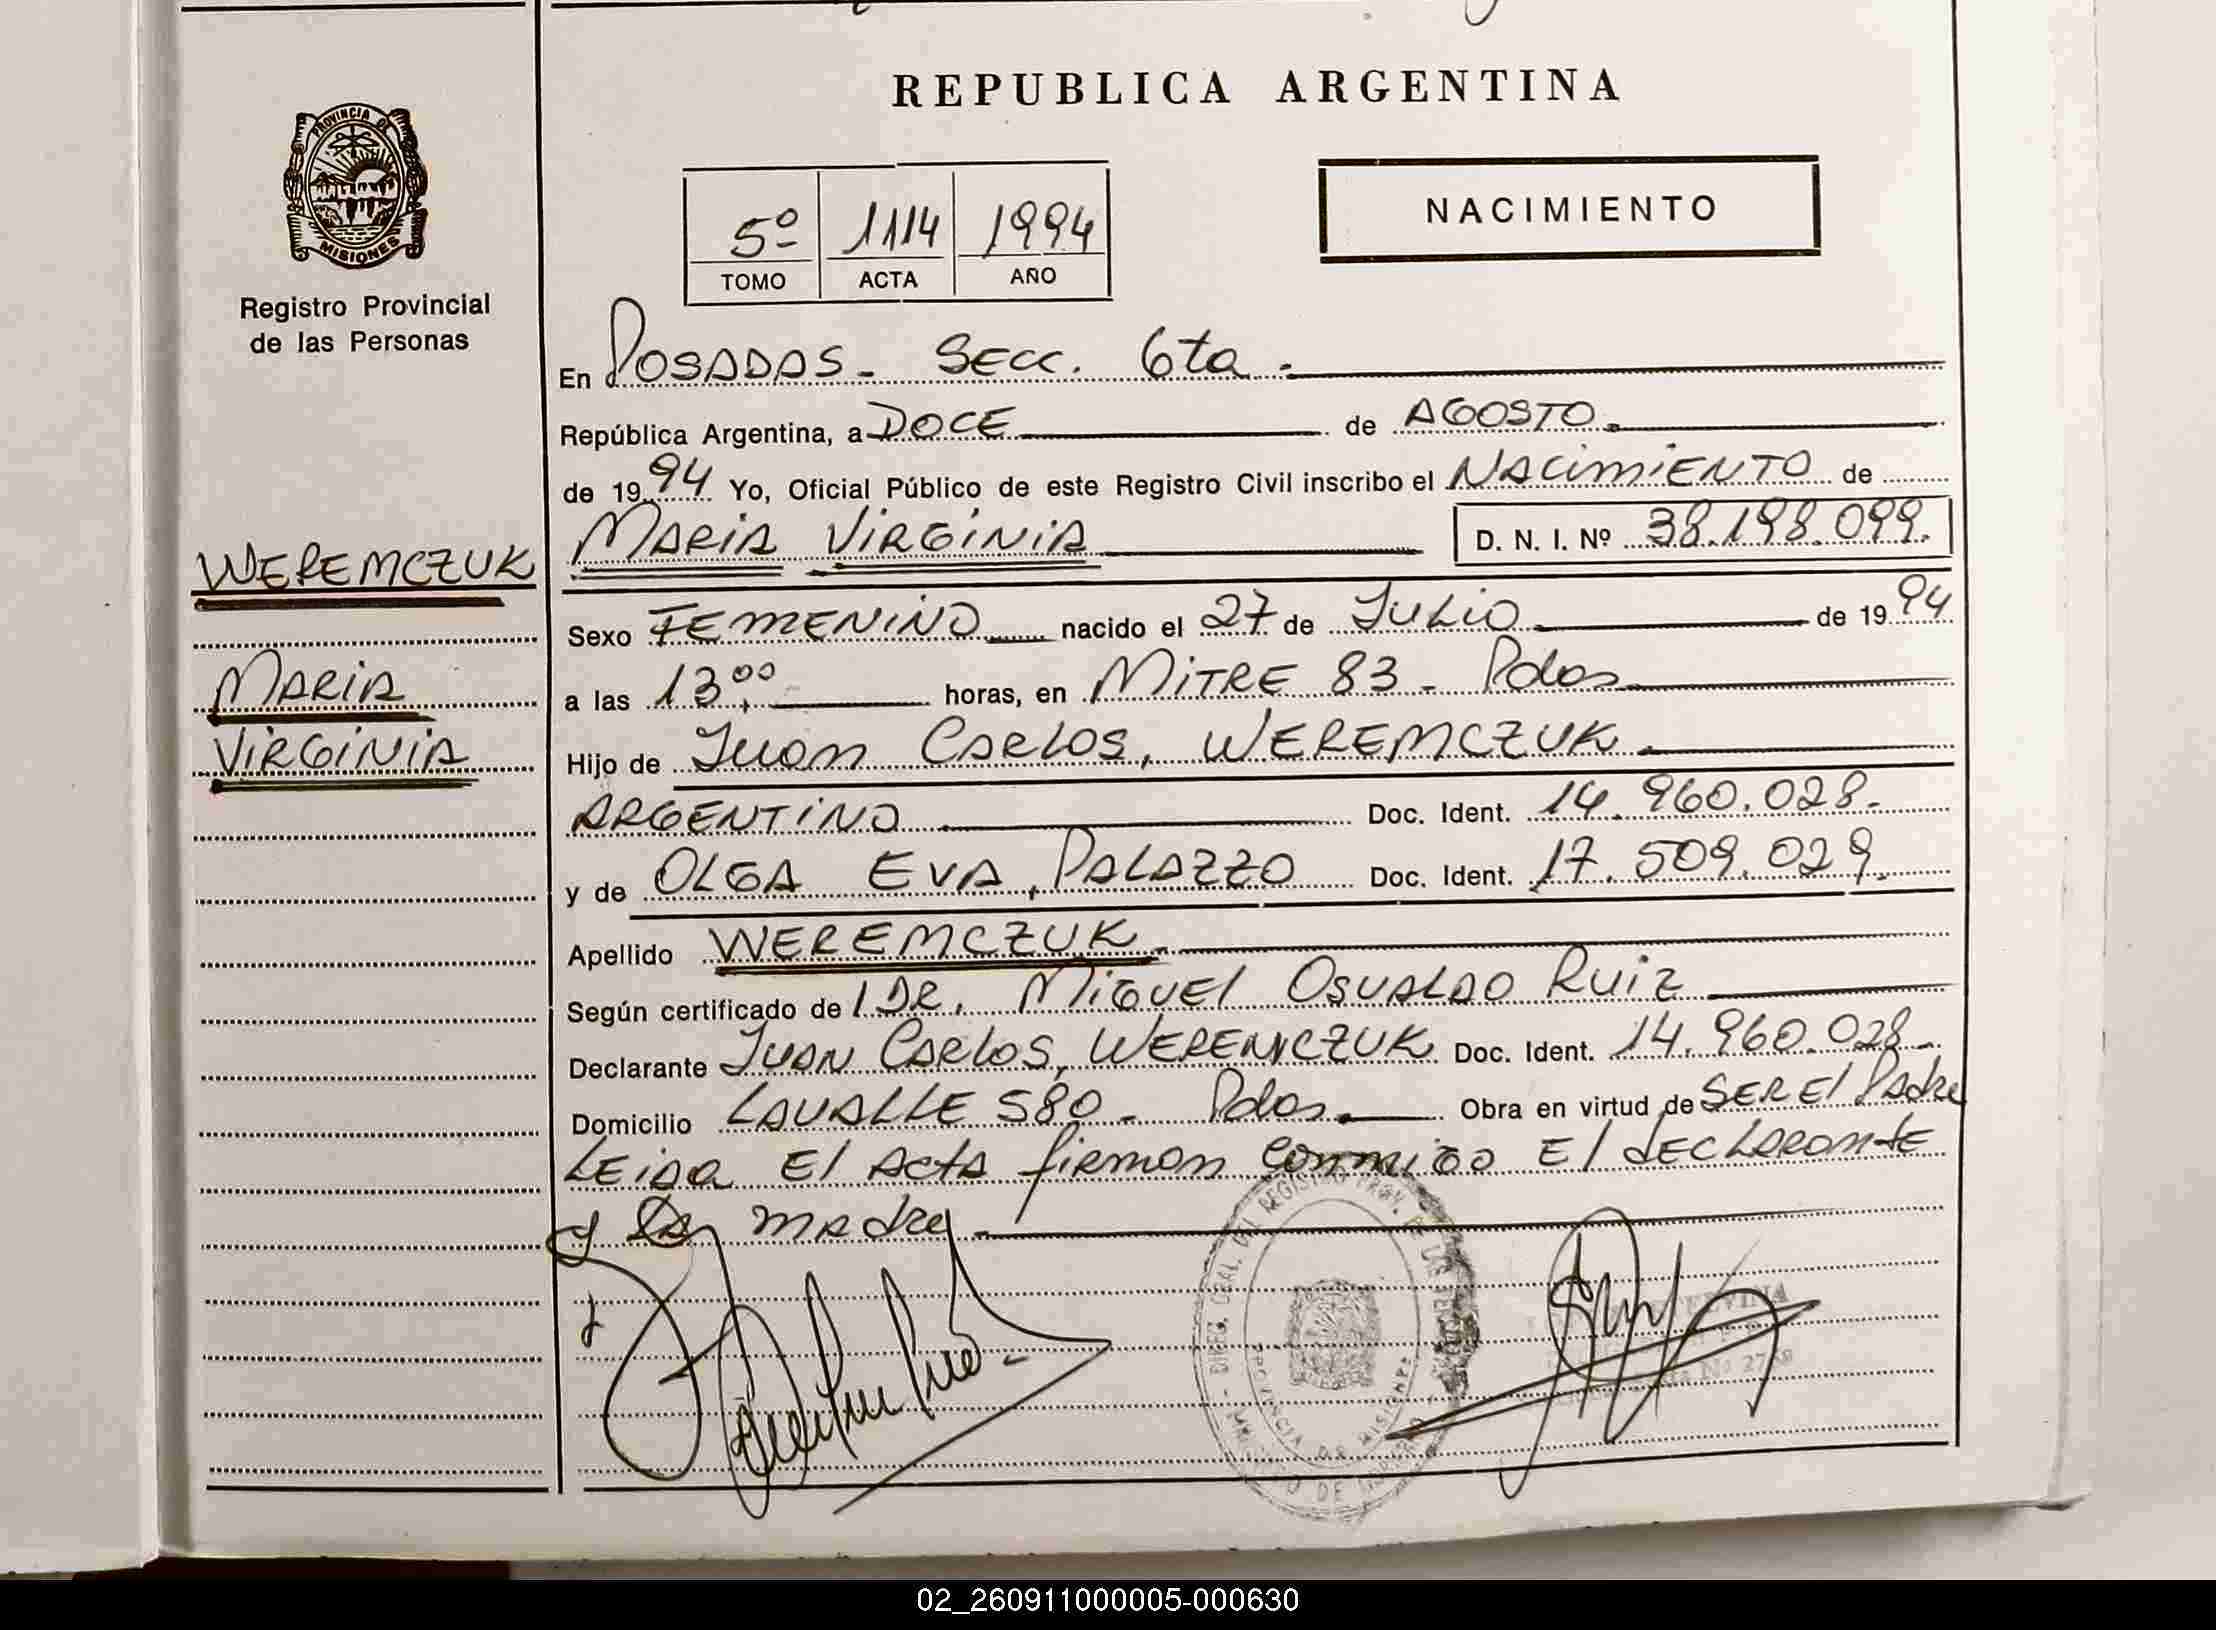 PROVINCIA DE
MISIONES
Registro Provincial
de las Personas
WEREMCZUK
MARIA
VIRGINIA
REPUBLICA ARGENTINA
5º 1114 1994
TOMO ACTA AÑO
NACIMIENTO
En POSADAS - SECC. 6ta.
República Argentina, a DOCE de AGOSTO
de 1994 Yo, Oficial Público de este Registro Civil inscribo el NACIMIENTO de
MARIA VIRGINIA D. N. I. Nº 38.198.099.
Sexo FEMENINO nacido el 27 de JULIO de 1994
a las 13,00 horas, en MITRE 83 - Pdas
Hijo de Juan CARLOS, WEREMCZUK
ARGENTINO Doc. Ident. 14.960.028.
y de OLGA EVA, PALAZZO Doc. Ident. 17.509.029.
Apellido WEREMCZUK.
Según certificado de l DR. MIGUEL OSVALDO RUIZ
Declarante JUAN CARLOS, WEREMCZUK Doc. Ident. 14.960.028
Domicilio LAVALLE 580 - Pdas. Obra en virtud de SER El PAdre
LEIDA El ActA firman conmigo El dECLARANtE
y LA mAdre
DIREC. GRAL. DEL REGISTRO PROV. DE LAS
PROVINCIA DE MISIONES
DE
Nº 27
02_260911000005-000630